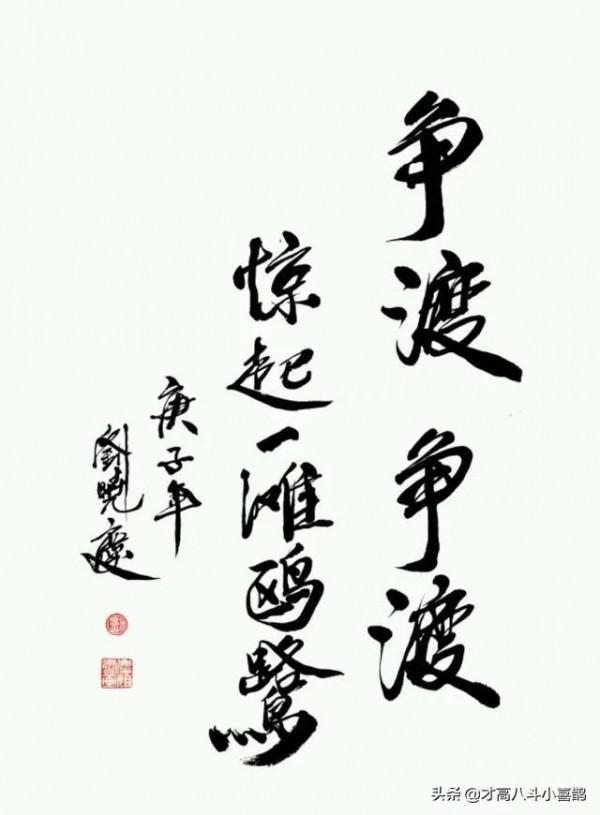 争渡争渡
惊起一滩鷗鷺
庚子年
劉曉慶
头条 @才高八斗小喜鹊